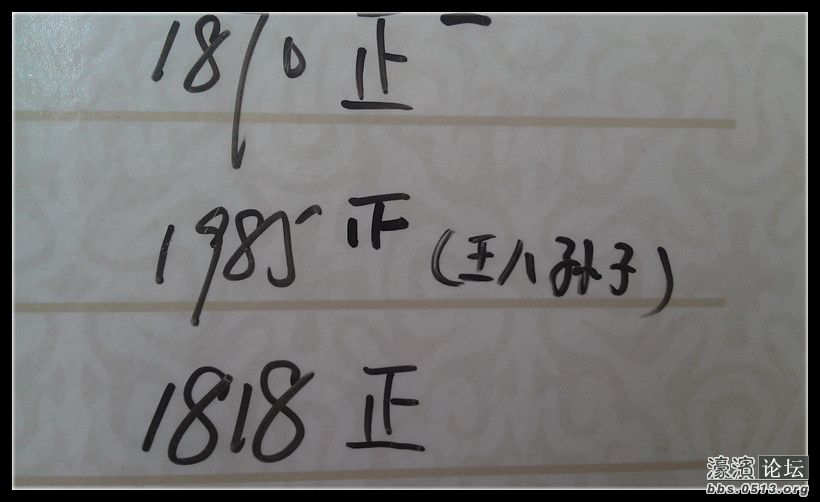 正 一
1985 正 (王八孙子)
1818 正
濠滨论坛
bbs.0513.org